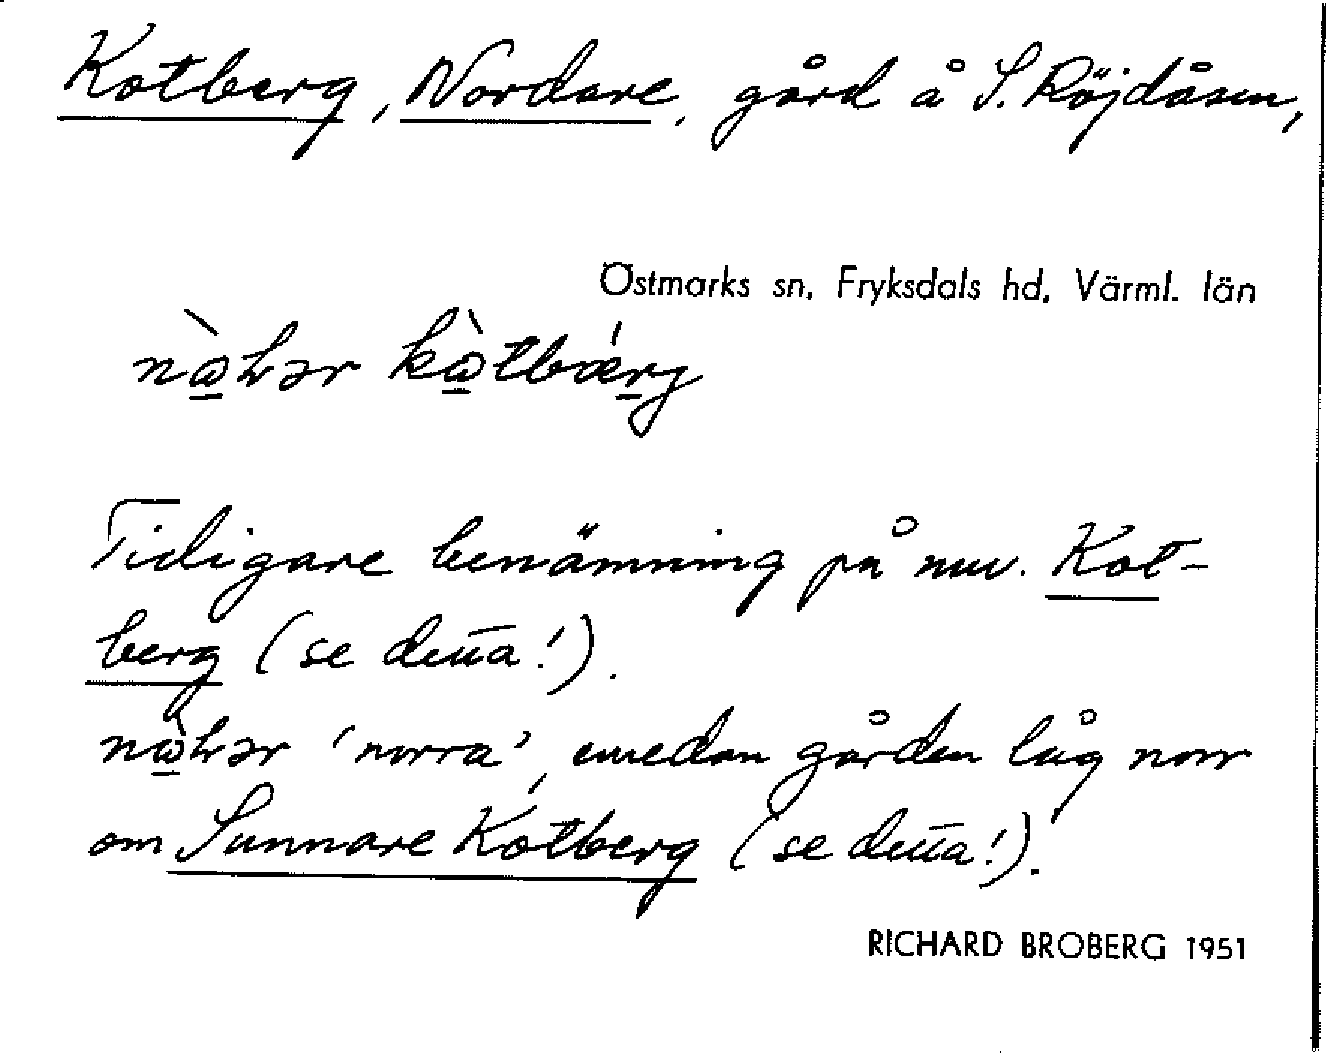 Kotberg, Nordare, gård å S. Röjdåsen,
Östmarks sn, Fryksdals hd, Värml. län
Tidigare benämning på nuv. Kot-
berg (se detta!).
'norra', emedan gården låg norr
om Sunnare Kotberg (se detta!).
RICHARD BROBERG 1951